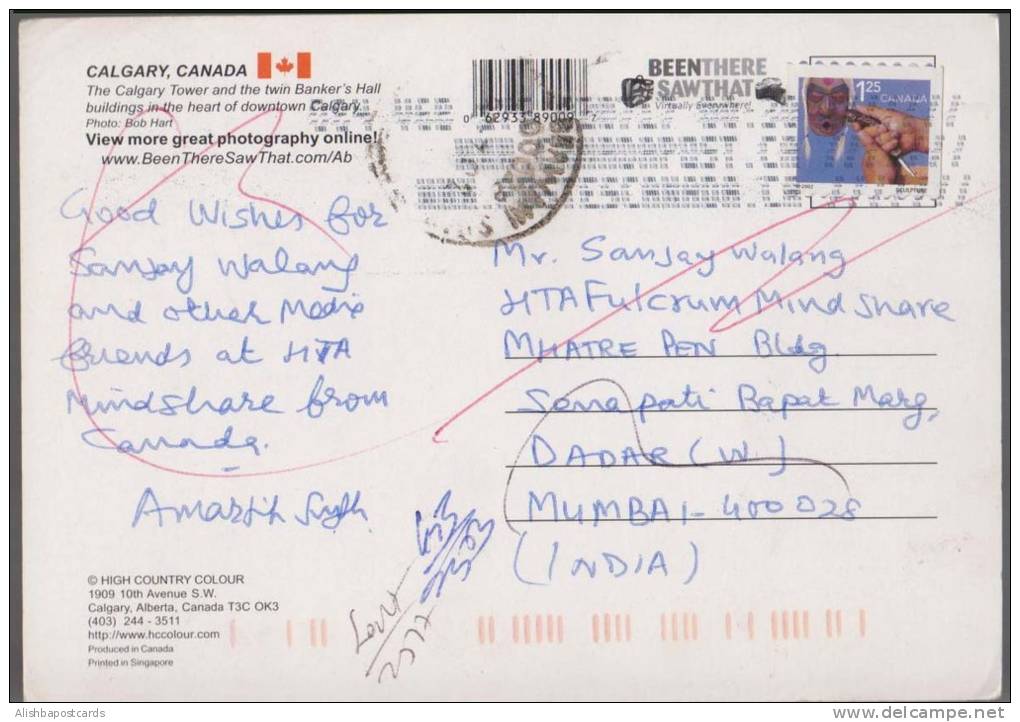 CALGARY, CANADA
The Calgary Tower and the twin Banker's Hall
buildings in the heart of downtown Calgary.
Photo: Bob Hart
View more great photography online!
www.BeenThereSawThat.com/Ab
0 62933 89009 7
BEENTHERE
SAWTHAT
Virtually Everywhere!
1.25
CANADA
© 2002
SCULPTURE
Good Wishes for
Sanjay Walang
and other Media
friends at HTA
Mindshare from
Canada.
Amarjit Singh
Mr. Sanjay Walang
HTA Fulcrum Mind share
MHATRE PEN Bldg.
Senapati Bapat Marg,
DADAR (W.)
MUMBAI - 400 028
(INDIA)
© HIGH COUNTRY COLOUR
1909 10th Avenue S.W.
Calgary, Alberta, Canada T3C OK3
(403) 244 - 3511
http://www.hccolour.com
Produced in Canada
Printed in Singapore
Alishbapostcards